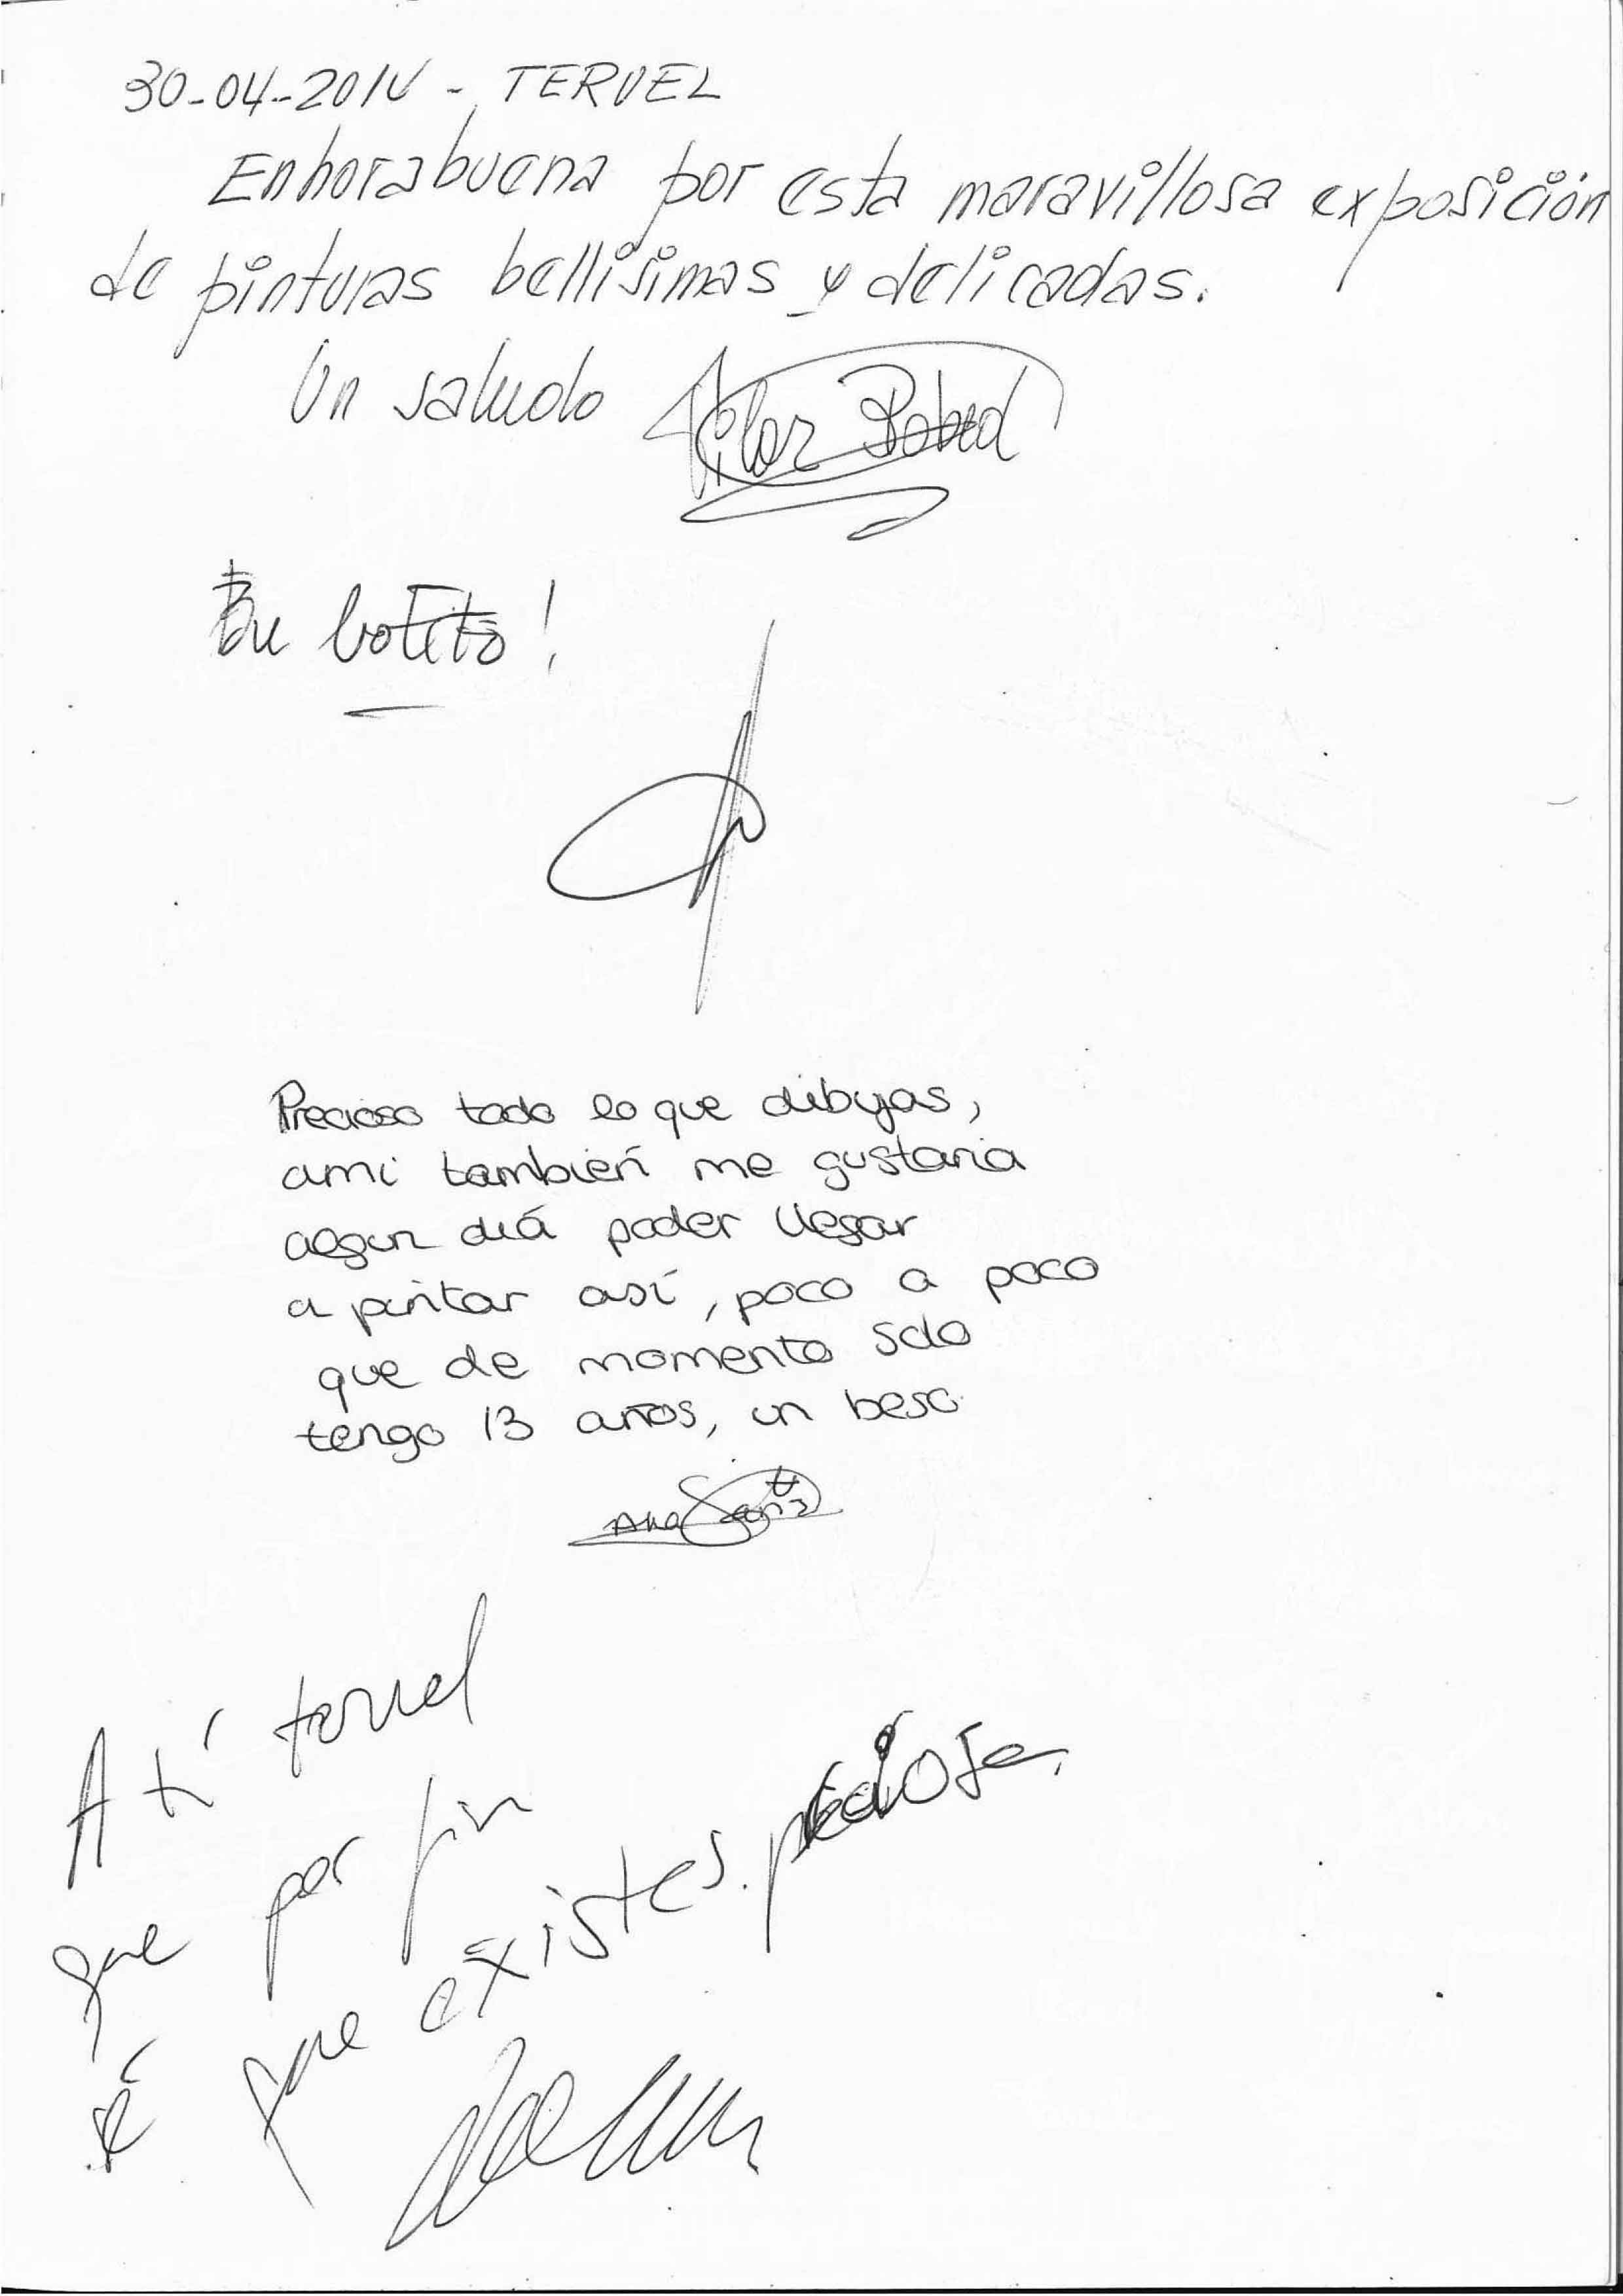 30-04-2014 - TERUEL
Enhorabuena por esta maravillosa exposición
de pinturas bellisimas y delicadas.
Un saludo Pilar Pobed
Precioso todo lo que dibujas,
ami también me gustaria
algun diá poder llegar
a pintar así, poco a poco
que de momento solo
tengo 13 años, un beso.
Ana Sanz
A tí teruel
que por fin
sé que existes. preciosa.